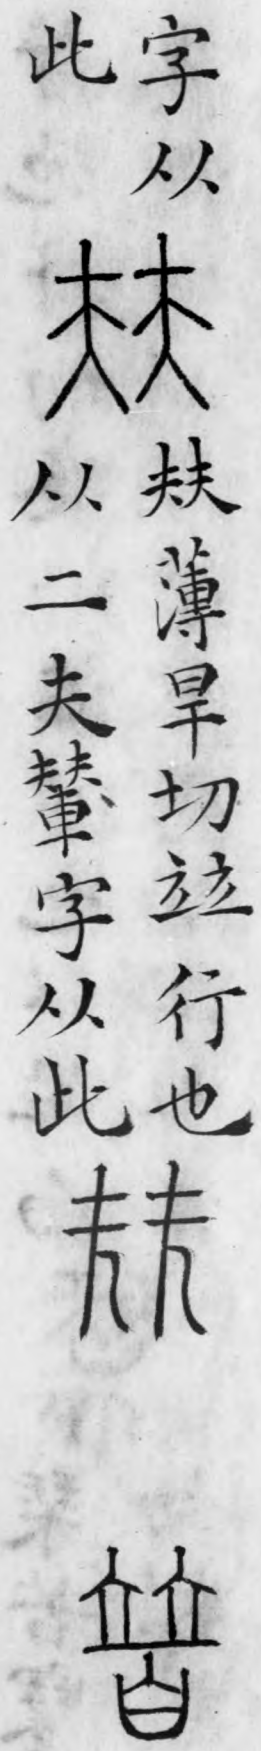 字从
此
㚘
㚘薄旱切竝行也
从二夫輦字从此
兓
暜